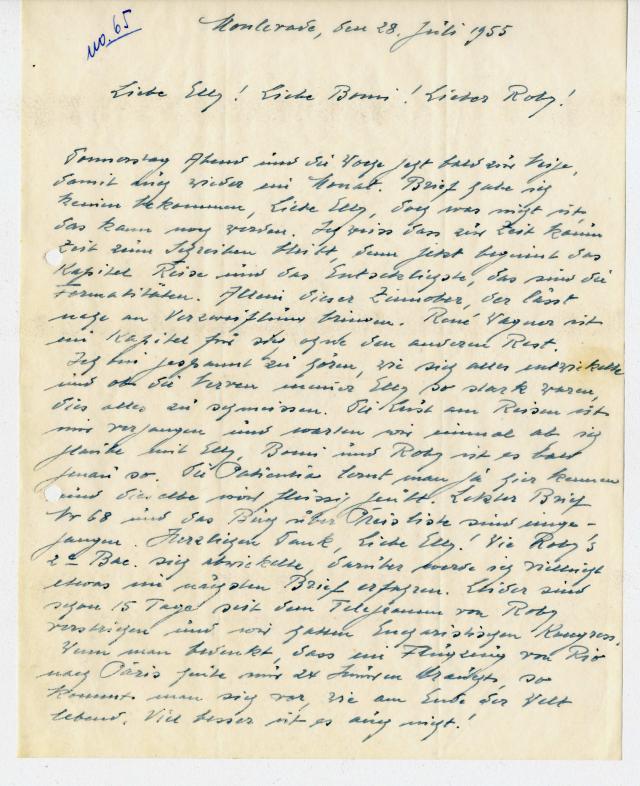 no. 65
Monlevade, den 28. Juli 1955
Liebe Elly! Liebe Bomi! Lieber Roby!
Donnerstag Abend und die Woche jetzt bald zur Neige,
damit auch wieder ein Monat. Brief habe ich
keinen bekommen, Liebe Elly, doch was nicht ist
das kann noch werden. Ich weiss dass zur Zeit kaum
Zeit zum Schreiben bleibt denn jetzt beginnt das
Kapitel Reise und das Entsetzlichste, das sind die
Formalitäten. Allein dieser Zinnober, der lässt
nahe an Verzweiflung bringen. René Wagner ist
ein Kapitel für sich ohne den anderen Rest.
Ich bin gespannt zu hören, wie sich alles entwickelte
und ob die Nerven meiner Elly so stark waren,
dies alles zu schmeissen. Die Lust am Reisen ist
mir vergangen und warten wir einmal ab ich
glaube mit Elly, Bomi und Roby ist es bald
genau so. Die Patientia lernt man ja hier kennen
und dieselbe wird fleissig geübt. Letzter Brief
Nr 68 und das Buch über Preisliste sind einge-
gangen. Herzlichen Dank, Liebe Elly! Wie Roby's
2e Bac. sich abwickelte, darüber werde ich vielleicht
etwas im nächsten Brief erfahren. Leider sind
schon 15 Tage seit dem Telegramm von Roby
verstrichen und wir hatten Eucharistischen Kongress.
Wenn man bedenkt, dass ein Flugzeug von Rio
nach Paris heute nur 24 Stunden braucht, so
kommt man sich vor, wie am Ende der Welt
lebend. Viel besser ist es auch nicht!